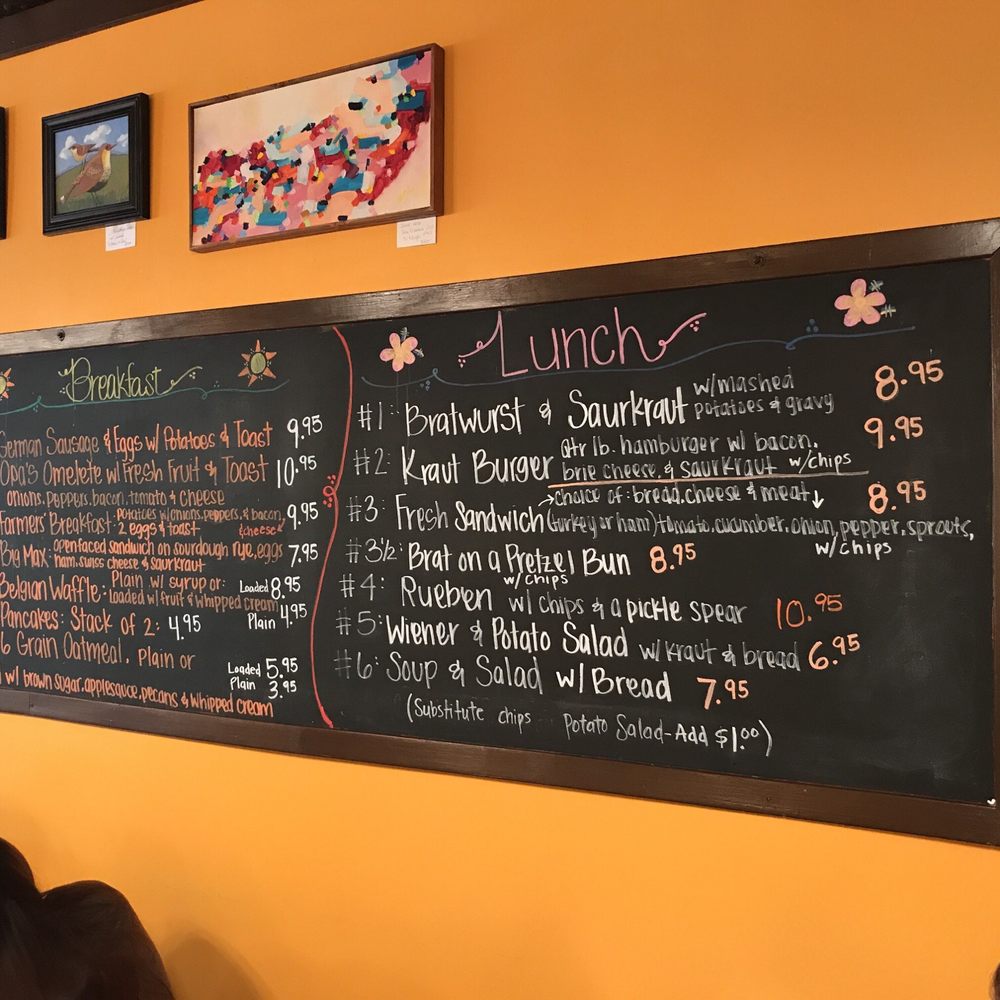 Breakfast
German Sausage & Eggs w/ Potatoes & Toast 9.95
Opa's Omelete w/ Fresh Fruit & Toast 10.95
onions, peppers, bacon, tomato & cheese
Farmers' Breakfast: potatoes w/ onions, peppers, & bacon, 9.95
2 eggs & toast & cheese
Big Max: openfaced sandwich on sourdough rye, eggs 7.95
ham, swiss cheese & saurkraut
Belgian Waffle: Plain w/ syrup or: Loaded 8.95
Loaded w/ fruit & whipped cream Plain 4.95
Pancakes: Stack of 2: 4.95
6 Grain Oatmeal, Plain or Loaded 5.95
Plain 3.95
w/ brown sugar, applesauce, pecans & whipped cream
Lunch
#1: Bratwurst & Saurkraut w/ mashed potatoes & gravy 8.95
#2: Kraut Burger qtr lb. hamburger w/ bacon, 9.95
brie cheese, & saurkraut w/chips
#3: Fresh Sandwich choice of: bread, cheese & meat 8.95
(turkey or ham) tomato, cucumber, onion, pepper, sprouts,
w/ chips
#3½: Brat on a Pretzel Bun 8.95
w/ chips
#4: Rueben w/ chips & a pickle spear 10.95
#5: Wiener & Potato Salad w/ kraut & bread 6.95
#6: Soup & Salad w/ Bread 7.95
(Substitute chips Potato Salad-Add $1.00)